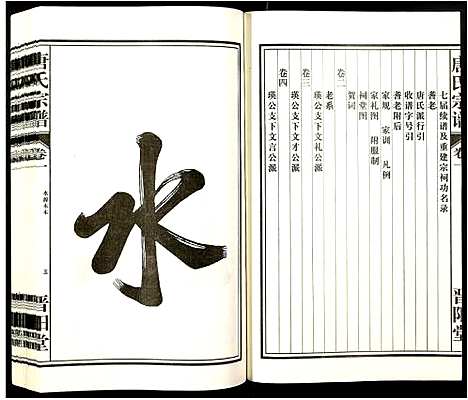 唐氏宗譜
卷一
七届续谱及重建宗祠功名录
耆老
唐氏派行引
收谱字号引
耆老附后
家规 家训 凡例
家礼图 附服制
祠堂图
贺词
卷二
老系
瑛公支下文礼公派
卷三
瑛公支下文才公派
卷四
瑛公支下文言公派
晋阳堂
水
唐氏宗譜
卷一
水源木本
晋阳堂